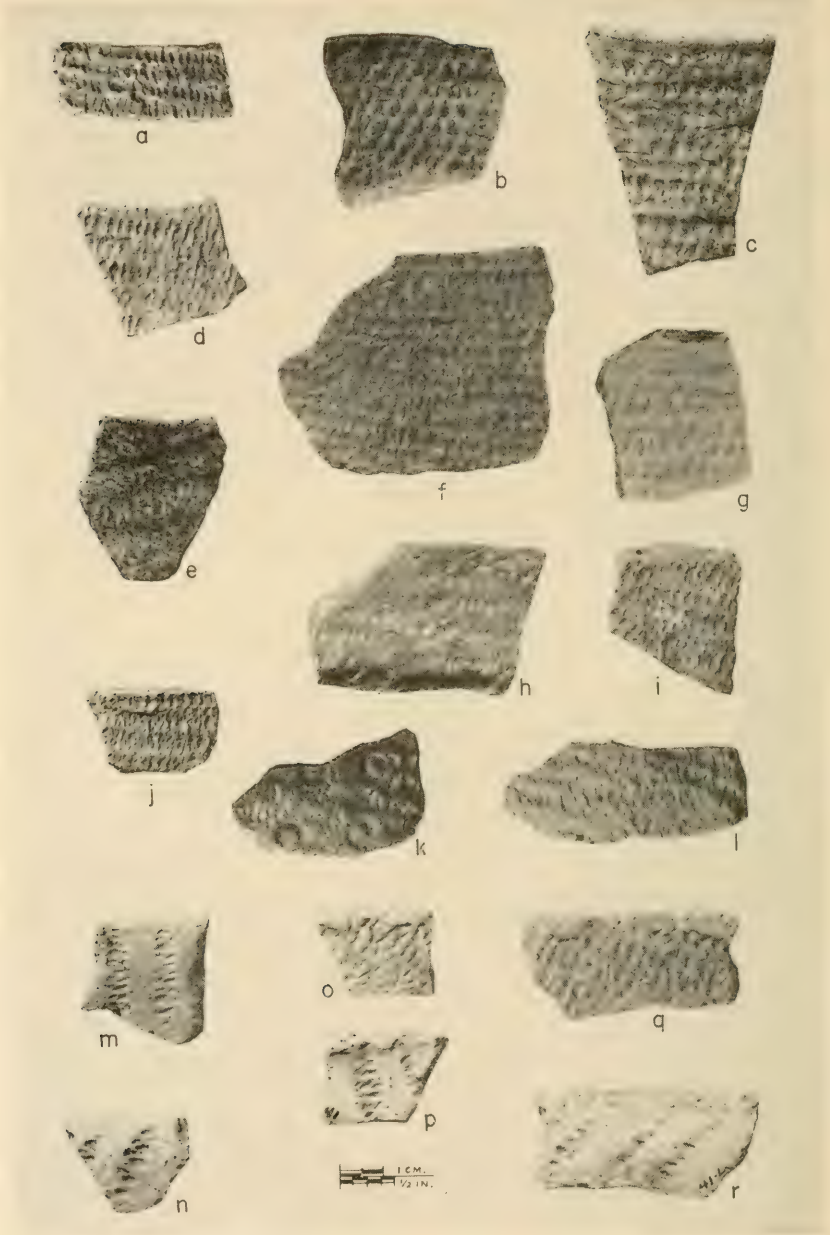 a
b
c
d
e
f
g
h
i
j
k
l
m
n
o
p
q
r
1 CM.
½ IN.